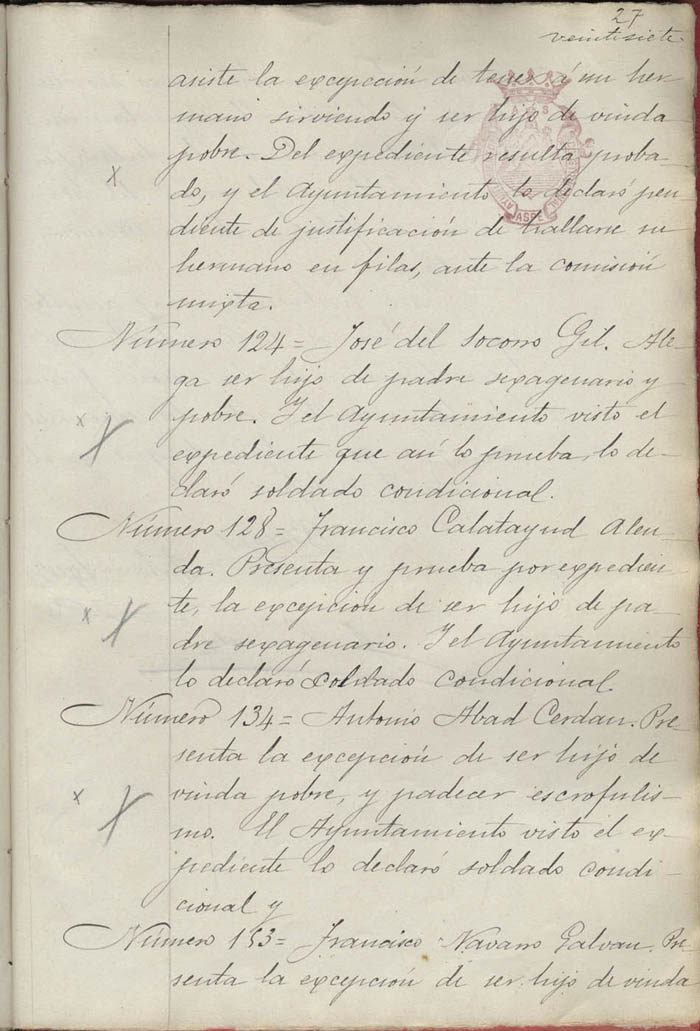 27
veintisiete
asiste la excepcción de tener á un her-
mano sirviendo y ser hijo de viuda
pobre.- Del expediente resulta proba-
do, y el Ayuntamiento lo declaró pen-
diente de justificación de hallarse su
hermano en filas, ante la comisión
mixta.
Número 124 = José del Socorro Gil. Ale-
ga ser hijo de padre sexagenario y
pobre. Y el Ayuntamiento visto el
expediente que así lo prueba, lo de-
claró soldado condicional.
Número 128 = Francisco Calatayud Alen-
da. Presenta y prueba por expedien-
te, la excepción de ser hijo de pa-
dre sexagenario. Y el Ayuntamiento
lo declaró soldado condicional
Número 134 = Antonio Abad Cerdan. Pre-
senta la excepción de ser hijo de
viuda pobre, y padecer escrofulis-
mo. El Ayuntamiento visto el ex-
pediente lo declaró soldado condi-
cional y
Número 153 = Francisco Navarro Galvan. Pre-
senta la excepción de ser hijo de viuda
ASPE